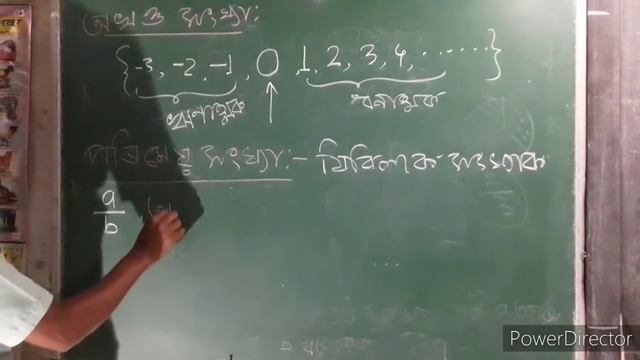 অখণ্ড সংখ্যা:
{-3, -2, -1, 0, 1, 2, 3, 4, ........}
ঋণাত্মক ধনাত্মক
পৰিমেয় সংখ্যা:- যিবিলাক সংখ্যাক
a/b
PowerDirector